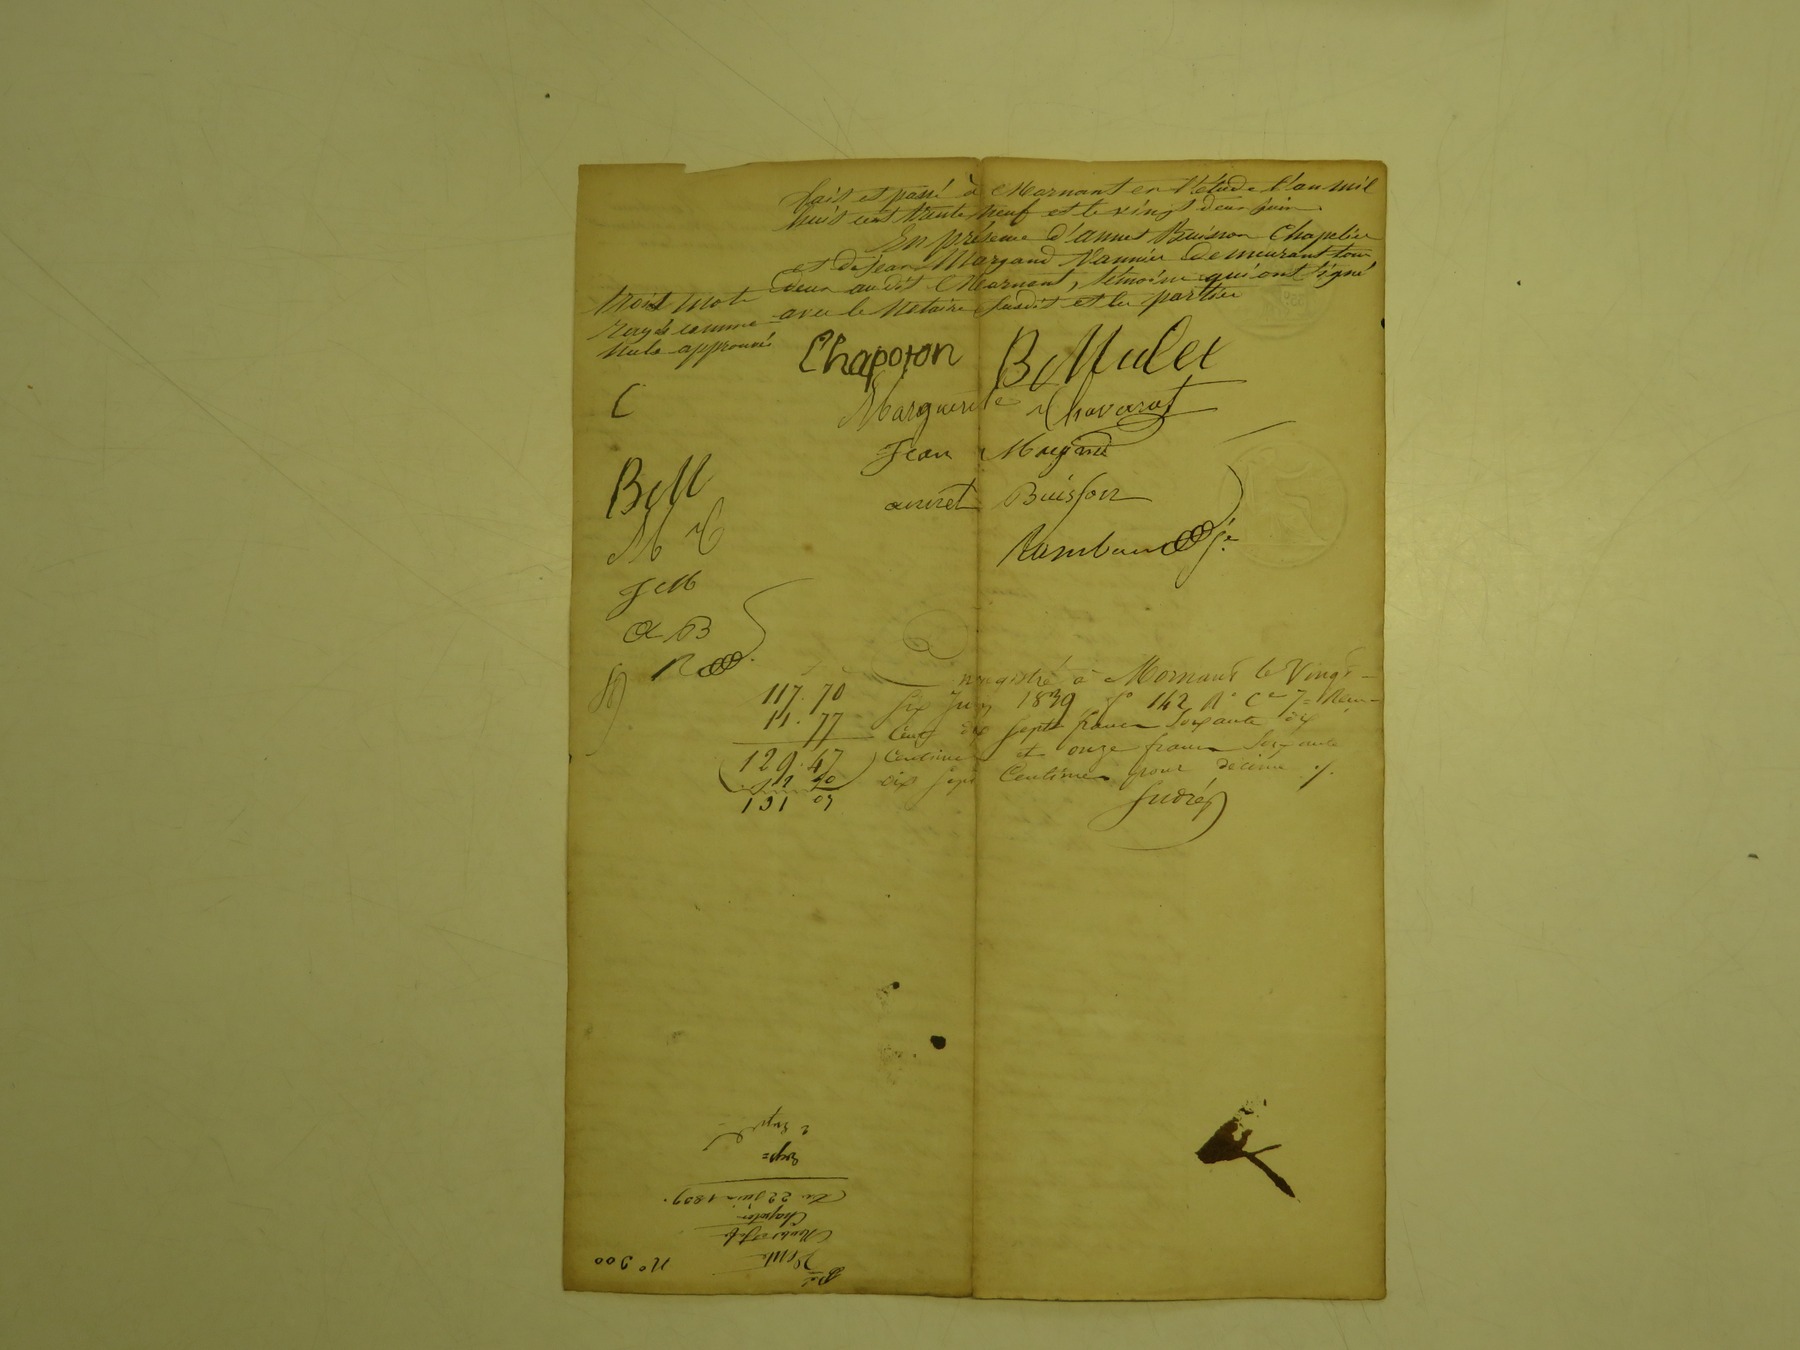 fait et passé à Mornant en l'étude l'an mil
huit cent trente neuf et le vingt deux juin
En présence d'annet Buisson Chapelier
et de Jean Margand Vannier demeurant tous
deux audit Mornant, témoins qui ont signé
avec le Notaire susdit et les parties
trois mots
rayés comme
nuls approuvés
Chapoton B Mulet
Marguerite Chavarot
Jean Margand
annet Buisson
Rambaud
C
B M
M C
J M
a B
R
Enregistré à Mornant le Vingt-
six Juin 1839 fo 142 Ro Ce 7=
Cent dix sept francs soixante dix
Centimes et onze francs soixante
dix sept Centimes pour décime
117.70
11.77
129.47
131 07
No 900
Vente
Mulet
Chapoton
Du 22 Juin 1839.